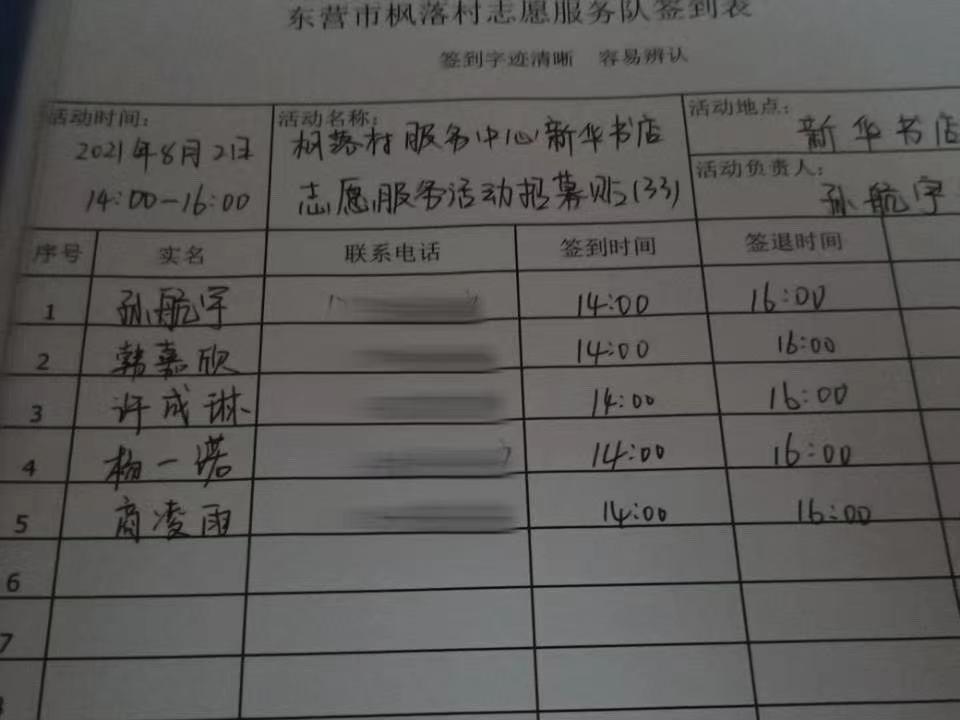 东营市枫落村志愿服务队签到表
签到字迹清晰 容易辨认
活动时间: 活动名称: 活动地点:
2021年8月2日 枫落村服务中心新华书店 新华书店
14:00-16:00 志愿服务活动招募贴(33) 活动负责人:
孙航宇
序号 实名 联系电话 签到时间 签退时间
1 孙航宇 14:00 16:00
2 韩嘉欣 14:00 16:00
3 许成琳 14:00 16:00
4 杨一诺 14:00 16:00
5 商凌雨 14:00 16:00
6
7